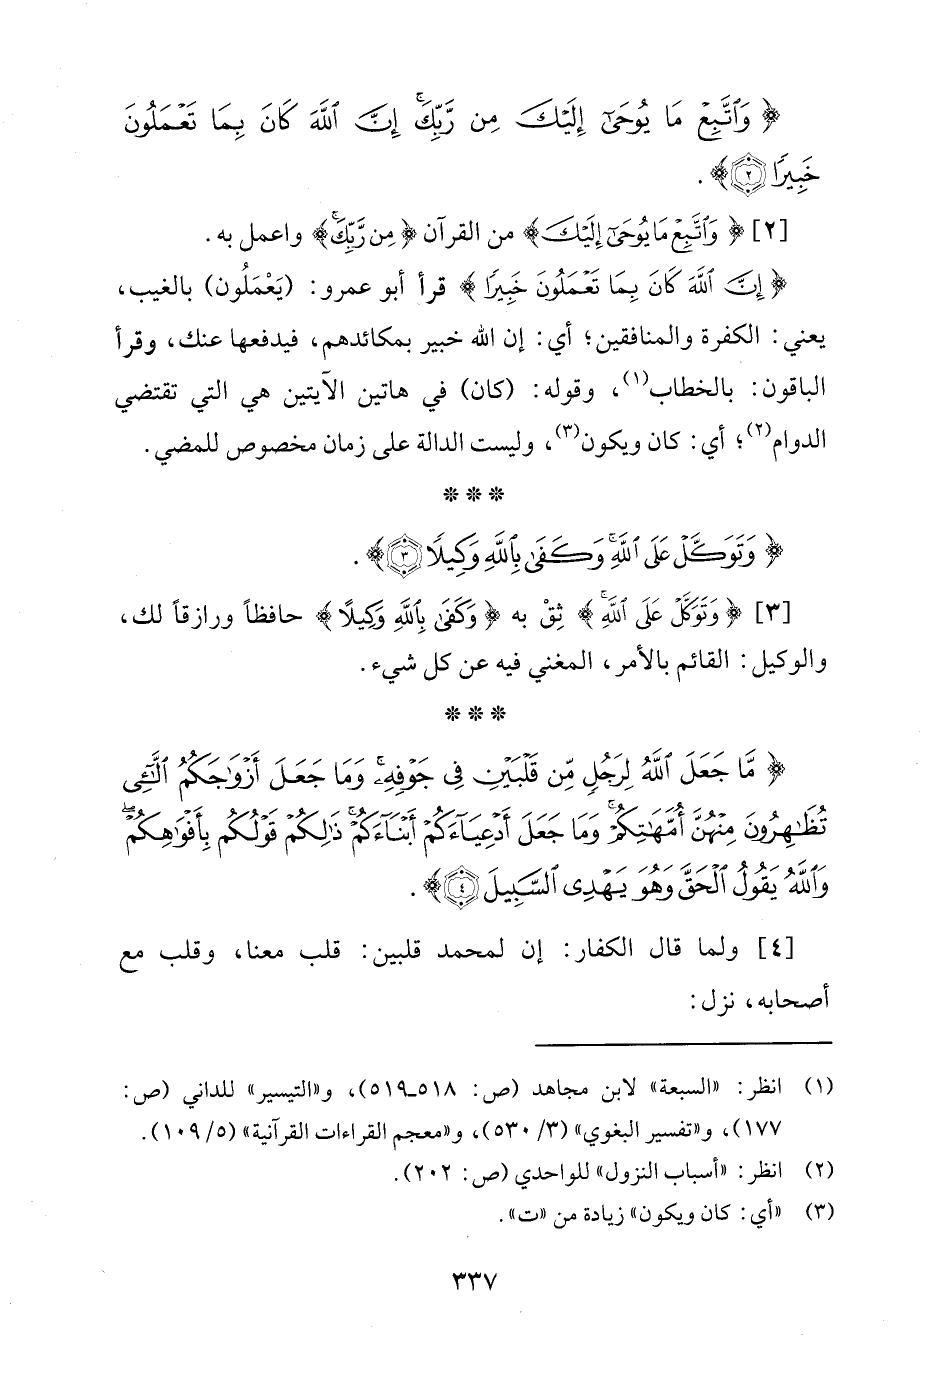 ﴿ وَٱتَّبِعْ مَا يُوحَىٰٓ إِلَيْكَ مِن رَّبِّكَ ۚ إِنَّ ٱللَّهَ كَانَ بِمَا تَعْمَلُونَ
خَبِيرًا ﴿٢﴾ ﴾ .
[٢] ﴿ وَٱتَّبِعْ مَا يُوحَىٰٓ إِلَيْكَ ﴾ من القرآن ﴿ مِن رَّبِّكَ ۚ ﴾ واعمل به .
﴿ إِنَّ ٱللَّهَ كَانَ بِمَا تَعْمَلُونَ خَبِيرًا ﴾ قرأ أبو عمرو : (يَعْمَلُون) بالغيب،
يعني : الكفرة والمنافقين؛ أي : إن الله خبير بمكائدهم، فيدفعها عنك، وقرأ
الباقون : بالخطاب(١)، وقوله : (كان) في هاتين الآيتين هي التي تقتضي
الدوام(٢)؛ أي : كان ويكون(٣)، وليست الدالة على زمان مخصوص للمضي .
* * *
﴿ وَتَوَكَّلْ عَلَى ٱللَّهِ ۚ وَكَفَىٰ بِٱللَّهِ وَكِيلًا ﴿٣﴾ ﴾ .
[٣] ﴿ وَتَوَكَّلْ عَلَى ٱللَّهِ ۚ ﴾ ثِقْ به ﴿ وَكَفَىٰ بِٱللَّهِ وَكِيلًا ﴾ حافظاً ورازقاً لك،
والوكيل : القائم بالأمر، المغني فيه عن كل شيء .
* * *
﴿ مَّا جَعَلَ ٱللَّهُ لِرَجُلٍ مِّن قَلْبَيْنِ فِى جَوْفِهِۦ ۚ وَمَا جَعَلَ أَزْوَٰجَكُمُ ٱلَّٰٓـِٔى
تُظَٰهِرُونَ مِنْهُنَّ أُمَّهَٰتِكُمْ ۚ وَمَا جَعَلَ أَدْعِيَآءَكُمْ أَبْنَآءَكُمْ ۚ ذَٰلِكُمْ قَوْلُكُم بِأَفْوَٰهِكُمْ ۖ
وَٱللَّهُ يَقُولُ ٱلْحَقَّ وَهُوَ يَهْدِى ٱلسَّبِيلَ ﴿٤﴾ ﴾ .
[٤] ولما قال الكفار : إن لمحمد قلبين : قلب معنا، وقلب مع
أصحابه، نزل :
(١) انظر : «السبعة» لابن مجاهد (ص : ٥١٨-٥١٩)، و«التيسير» للداني (ص :
١٧٧)، و«تفسير البغوي» (٣/ ٥٣٠)، و«معجم القراءات القرآنية» (٥/ ١٠٩).
(٢) انظر : «أسباب النزول» للواحدي (ص : ٢٠٢).
(٣) «أي : كان ويكون» زيادة من «ت».
٣٣٧